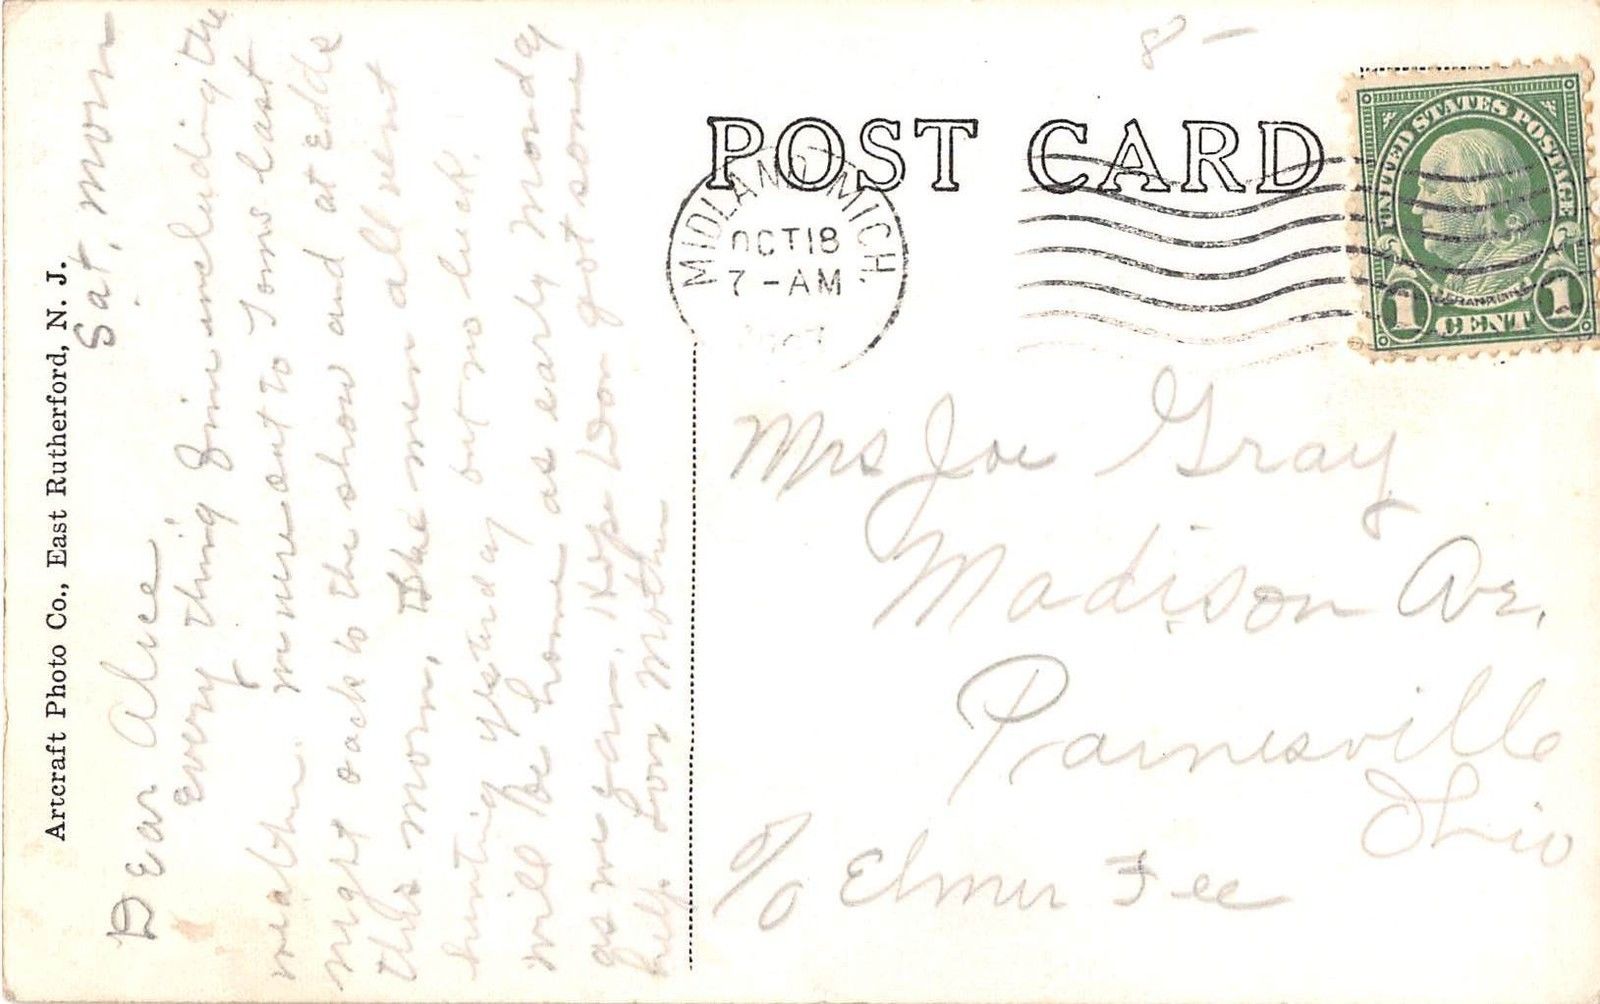 8 -
POST CARD
UNITED STATES POSTAGE
FRANKLIN
1 CENT 1
MIDLAND MICH.
OCT 18
7 - AM
Artcraft Photo Co., East Rutherford, N. J.
Sat, morn
Dear Alice
Every thing fine including the
weather. were out to Toms last
night back to the show and at Edds
this morn. The men all went
hunting yesterday but no luck.
will be home as early Monday
as we can. Hope Don got some
help. Love Mother
Mrs Joe Gray
Madison Ave.
Painesville
Ohio
c/o Elmer Fee